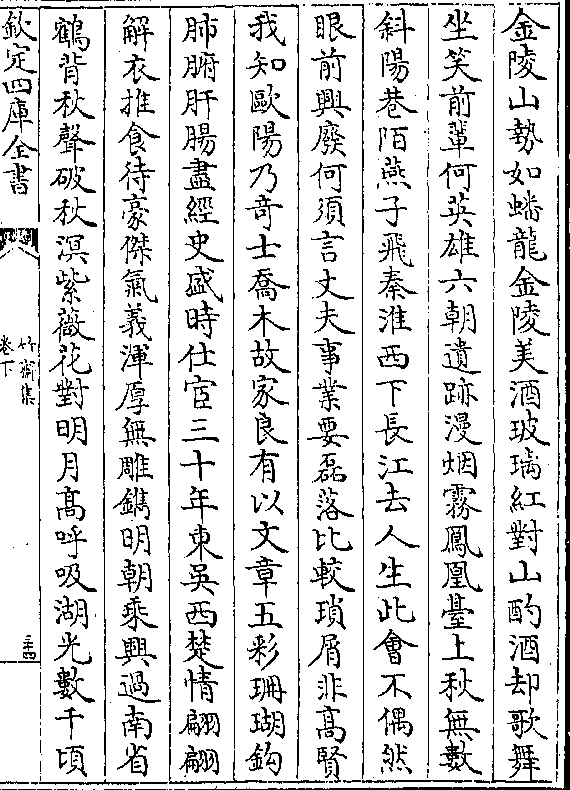 金陵山勢如蟠龍金陵美酒玻瓈紅對山酌酒却歌舞
坐笑前輩何英雄六朝遺跡漫烟霧鳳凰臺上秋無數
斜陽巷陌燕子飛秦淮西下長江去人生此會不偶然
眼前興廢何須言丈夫事業要磊落比較瑣屑非髙賢
我知歐陽乃竒士喬木故家良有以文章五彩珊瑚鈎
肺腑肝腸盡經史盛時仕宦三十年東吳西楚情翩翩
解衣推食待豪傑氣義渾厚無雕鐫明朝乘興過南省
鶴背秋聲破秋溟紫薇花對明月髙呼吸湖光數千頃
欽定四庫全書
竹齋集
卷下
三十四